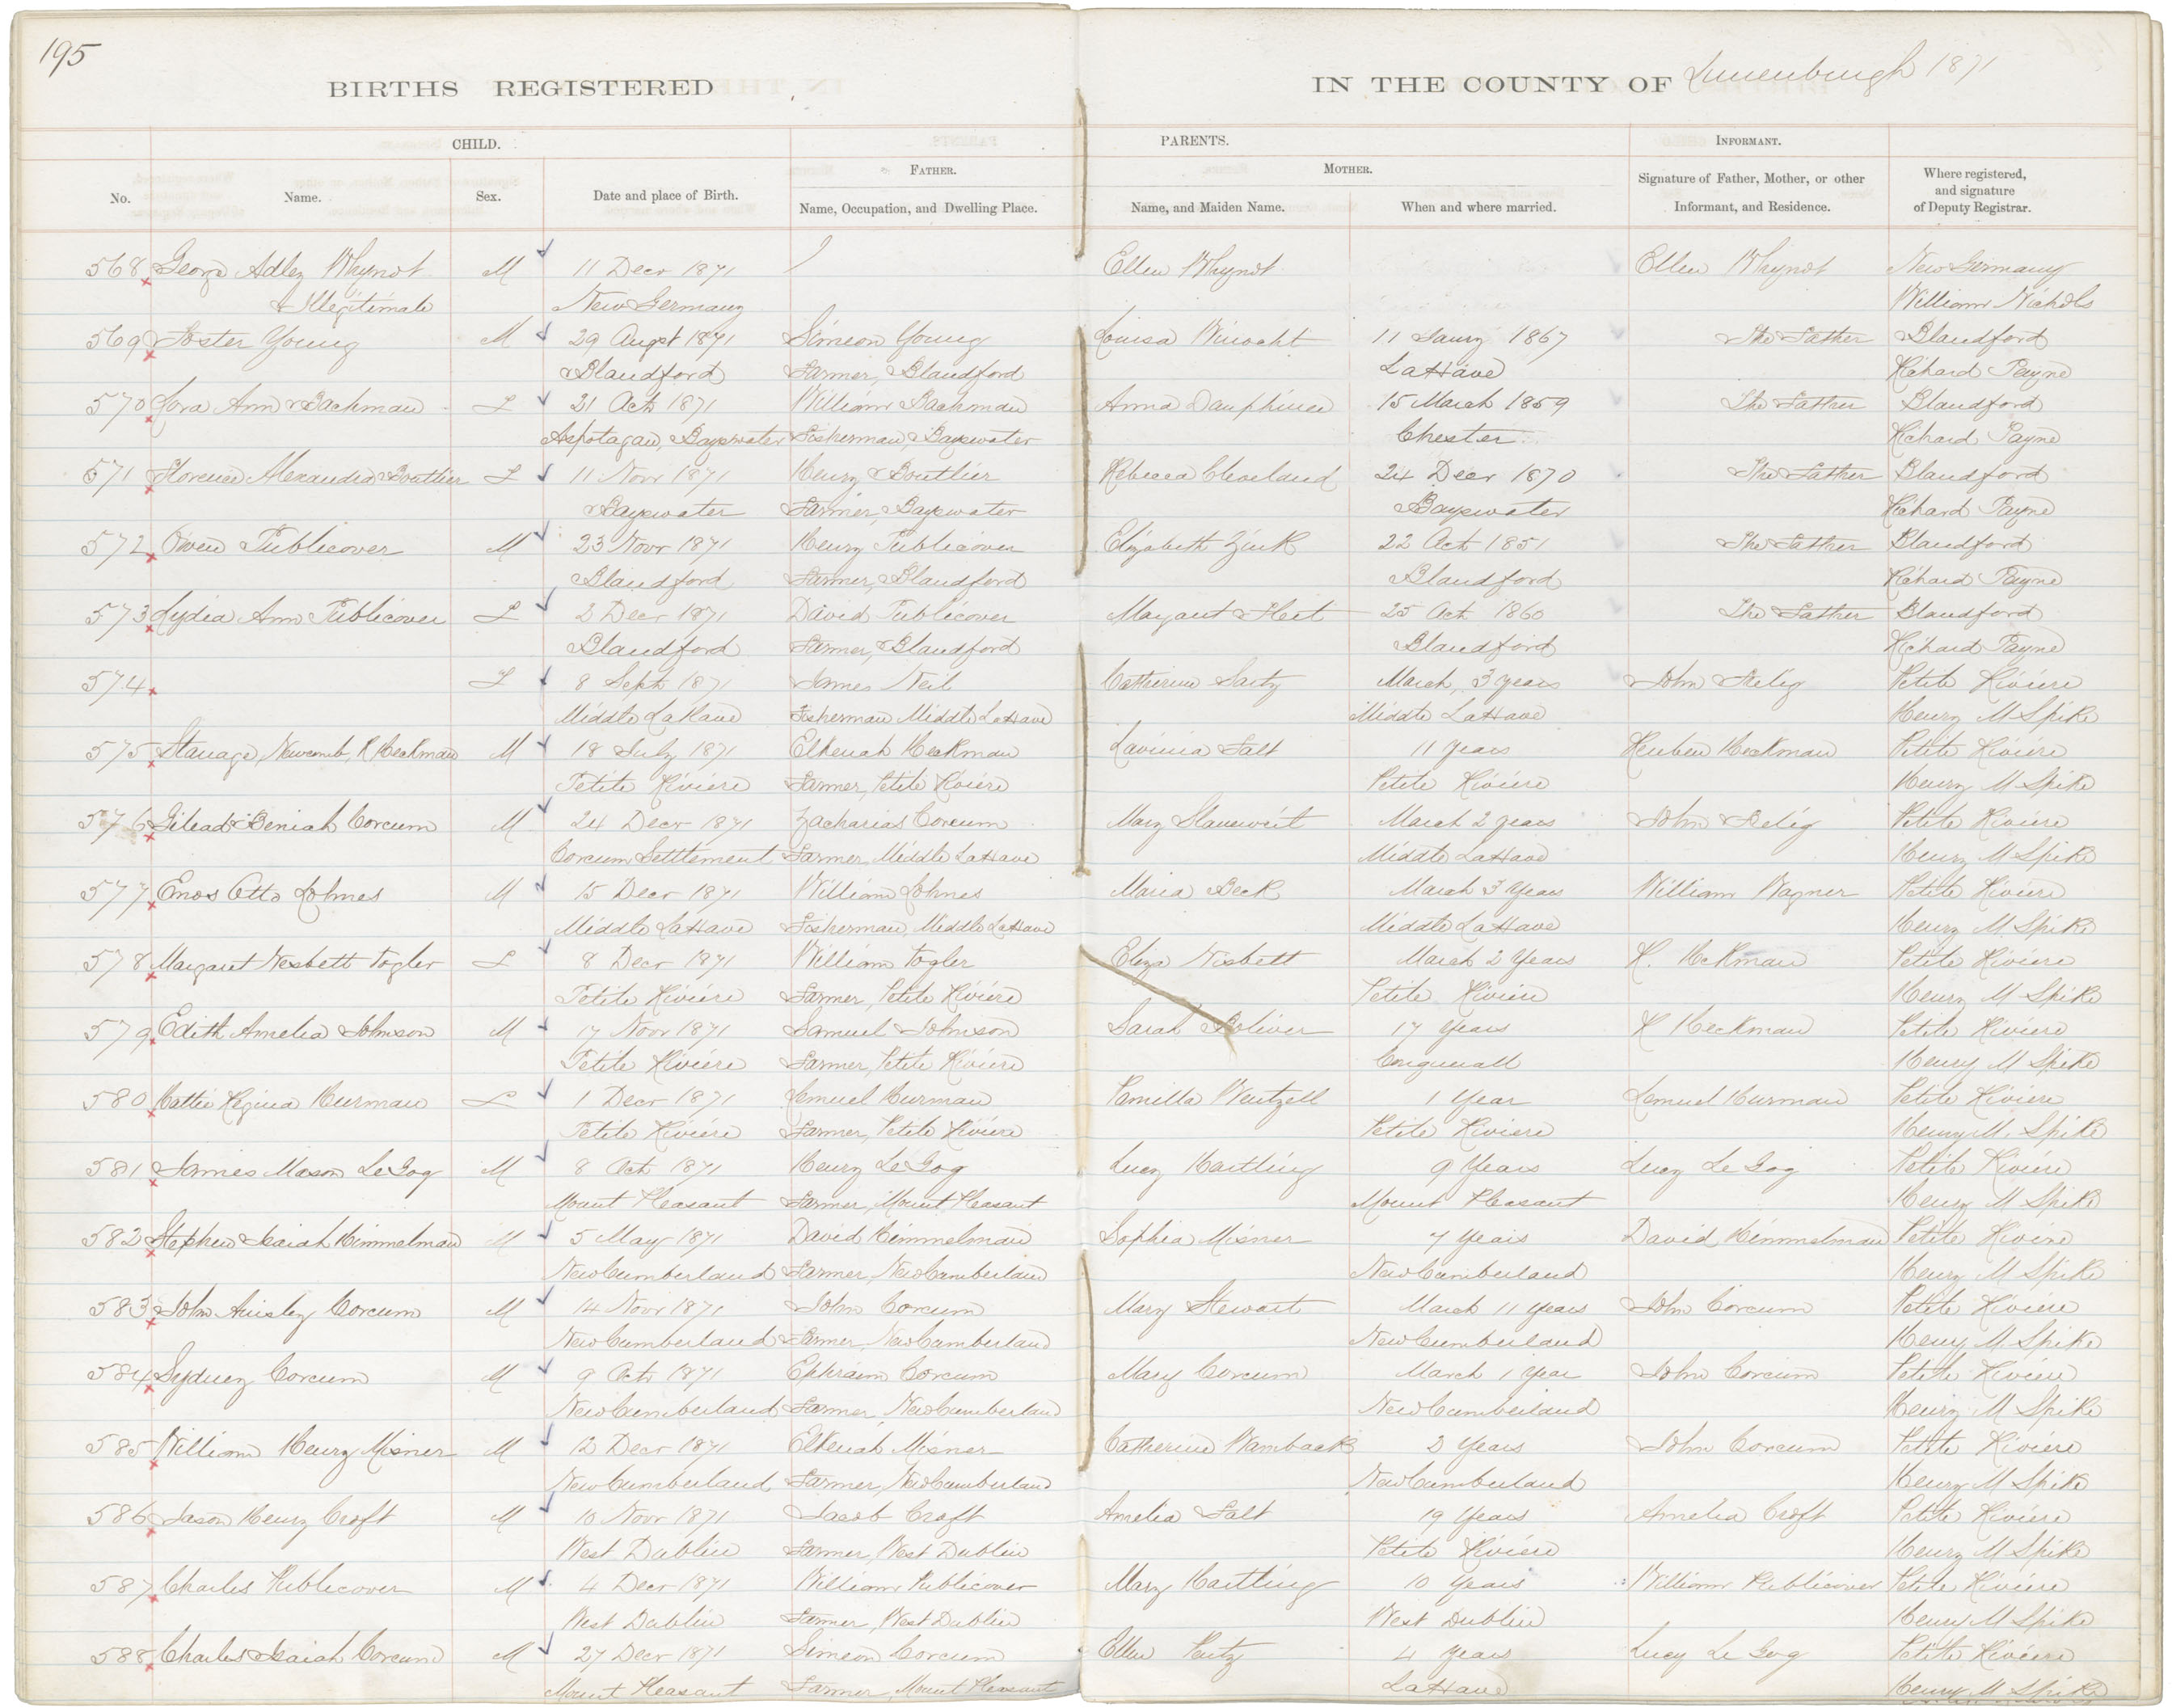 195
BIRTHS REGISTERED IN THE COUNTY OF Lunenburgh 1871
CHILD. PARENTS. INFORMANT.
FATHER. MOTHER.
No. Name. Sex. Date and place of Birth. Name, Occupation, and Dwelling Place. Name, and Maiden Name. When and where married. Signature of Father, Mother, or other Informant, and Residence. Where registered, and signature of Deputy Registrar.
568 George Adley Whynot M 11 Decr 1871 Ellen Whynot Ellen Whynot New Germany
Illegitimate New Germany William Nichols
569 Foster Young M 29 Augst 1871 Simeon Young Louisa 11 Jany 1867 The Father Blandford
Blandford Farmer, Blandford LaHave Richard Payne
570 Cora Ann Bachman F 21 Oct 1871 William Bachman Anna Dauphinee 15 March 1859 The Father Blandford
Aspotagan, Bayswater Fisherman, Bayswater Chester Richard Payne
571 Florence Alexandra Boutlier F 11 Novr 1871 Henry Boutlier Rebecca Cleveland 24 Decr 1870 The Father Blandford
Bayswater Farmer, Bayswater Bayswater Richard Payne
572 Owen Publicover M 23 Novr 1871 Henry Publicover Elizabeth Zink 22 Oct 1851 The Father Blandford
Blandford Farmer, Blandford Blandford Richard Payne
573 Lydia Ann Publicover F 2 Decr 1871 David Publicover 25 Oct 1860 The Father Blandford
Blandford Farmer, Blandford Blandford Richard Payne
574 F 8 Sept 1871 James Neil Catherine Sarty March, 3 years John Selig Petite Riviére
Middle LaHave Fisherman Middle LaHave Middle LaHave Henry M Spike
575 Newcomb, R Heckman M 18 July 1871 Elkenah Heckman Lavinia Falt 11 years Reuben Heckman Petite Riviére
Petite Riviére Farmer, Petite Riviére Petite Riviére Henry M Spike
576 Gilead Beniah Corcum M 24 Decr 1871 Zacharias Corcum Mary March 2 years John Selig Petite Riviére
Corcum Settlement Farmer, Middle LaHave Middle LaHave Henry M Spike
577 Enos Otto Lohnes M 15 Decr 1871 William Lohnes Maria Beck March 3 Years William Wagner Petite Riviére
Middle LaHave Fisherman, Middle LaHave Middle LaHave Henry M Spike
578 Margaret Nesbett Vogler F 8 Decr 1871 William Vogler Eliza Nisbett March 2 Years H. Petite Riviére
Petite Riviére Farmer, Petite Riviére Petite Riviere Henry M Spike
579 Edith Amelia Johnson M 17 Novr 1871 Samuel Johnson Sarah Boliver 17 Years R Heckman Petite Riviére
Petite Riviére Farmer, Petite Riviére Conquerall Henry M Spike
580 Hattie Regina Hurman F 1 Decr 1871 Lemuel Hurman Pamilla Wentzell 1 Year Lemuel Hurman Petite Riviere
Petite Riviére Farmer, Petite Riviére Petite Riviere Henry M. Spike
581 James Mason LeGog M 8 Oct 1871 Henry LeGog Lucy Hartling 9 Years Lucy Le Gog Petite Riviére
Mount Pleasant Farmer, Mount Pleasant Mount Pleasant Henry M Spike
582 Stephen Isaiah Himmelman M 5 May 1871 David Himmelman Sophia Misner 7 years David Himmelman Petite Riviére
New Cumberland Farmer, New Cumberland New Cumberland Henry M Spike
583 John Ainsley Corcum M 14 Novr 1871 John Corcum Mary Stewart March 11 years John Corcum Petite Riviére
New Cumberland Farmer, New Cumberland New Cumberland Henry M Spike
584 Sydney Corcum M 9 Oct 1871 Ephraim Corcum Mary Corcum March 1 year John Corcum Petite Riviére
New Cumberland Farmer, New Cumberland New Cumberland Henry M Spike
585 William Henry Misner M 12 Decr 1871 Elkenah Misner Catherine Wamback 2 Years John Corcum Petite Riviére
New Cumberland Farmer, New Cumberland New Cumberland Henry M Spike
586 Jason Henry Croft M 10 Novr 1871 Jacob Croft Amelia Falt 19 Years Amelia Croft Petite Riviére
West Dublin Farmer, West Dublin Petite Riviére Henry M Spike
587 Charles Publicover M 4 Decr 1871 William Publicover Mary Hartling 10 Years William Publicover Petite Riviére
West Dublin Farmer, West Dublin West Dublin Henry M Spike
588 Charles Isaiah Corcum M 27 Decr 1871 Simeon Corcum Ellen 4 Years Lucy Le Gog Petite Riviére
Mount Pleasant Farmer, Mount Pleasant LaHave Henry M Spike